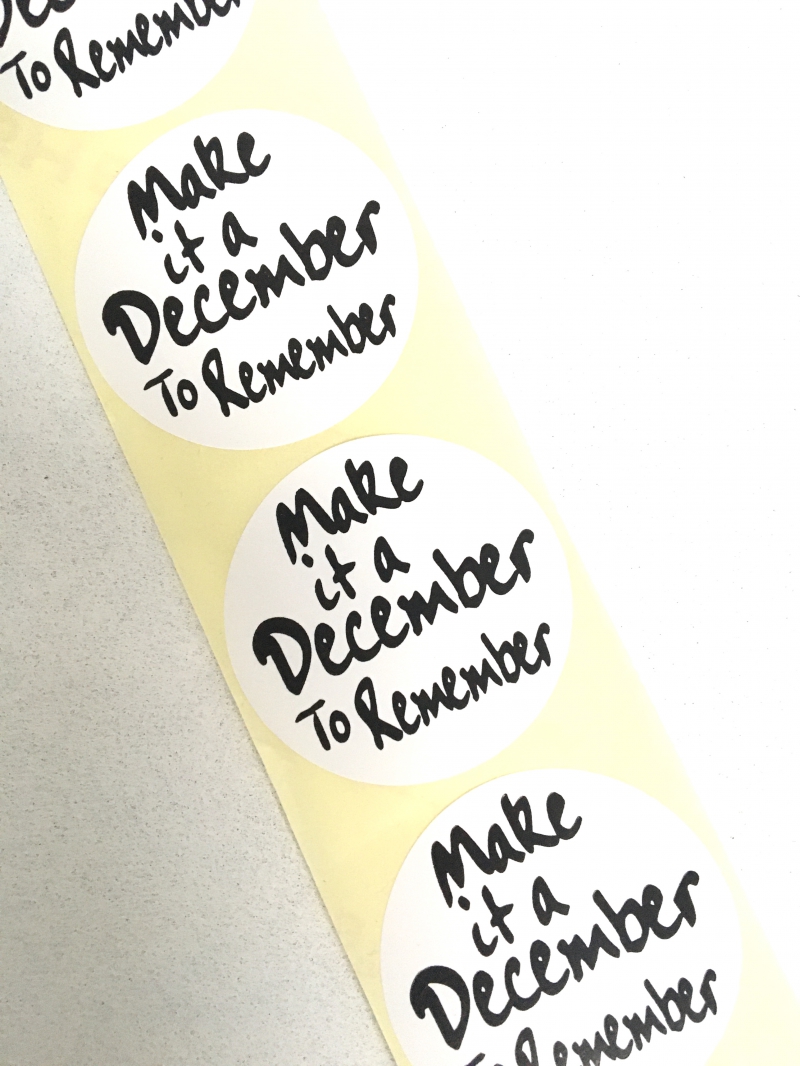 December
To Remember
Make
it a
December
To Remember
Make
it a
December
To Remember
Make
it a
December
To Remember